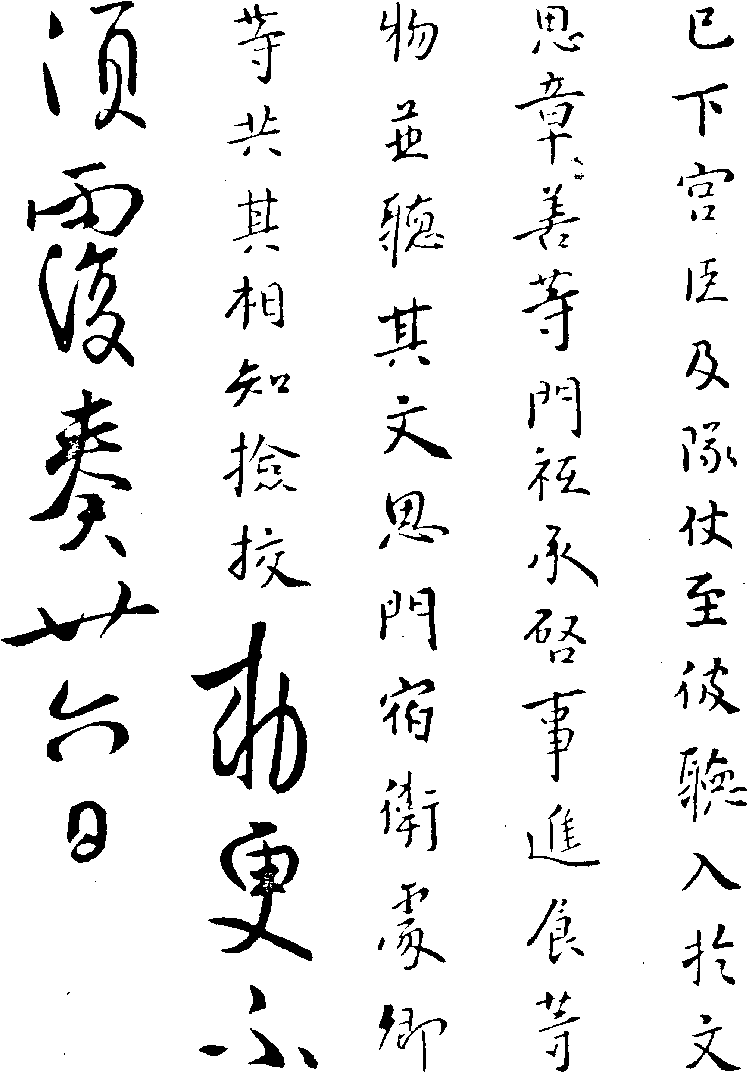 已下宫臣及隊仗至彼聽入於文
思章〻善等門祗承啓事進食等
物並聽其文思門宿衛處卿
等共其相知撿挍勅更不
須覆奏廿六日